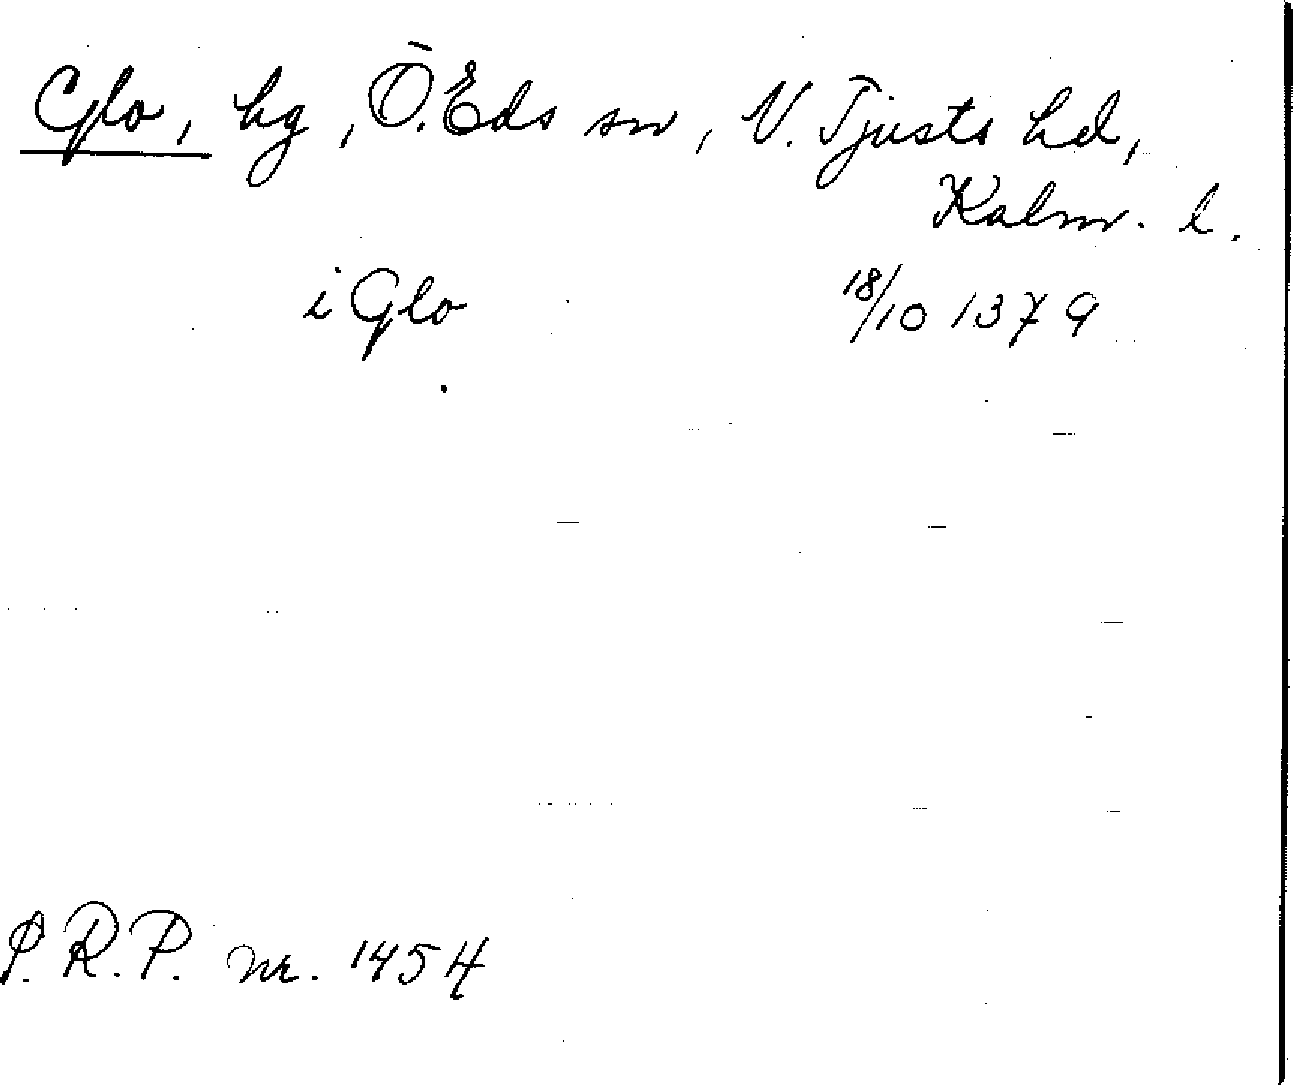 Glo, hg, Ö. Eds sn, V. Tjusts hd,
Kalm. l.
i Glo 18/10 1379
P. R. P. nr. 1454